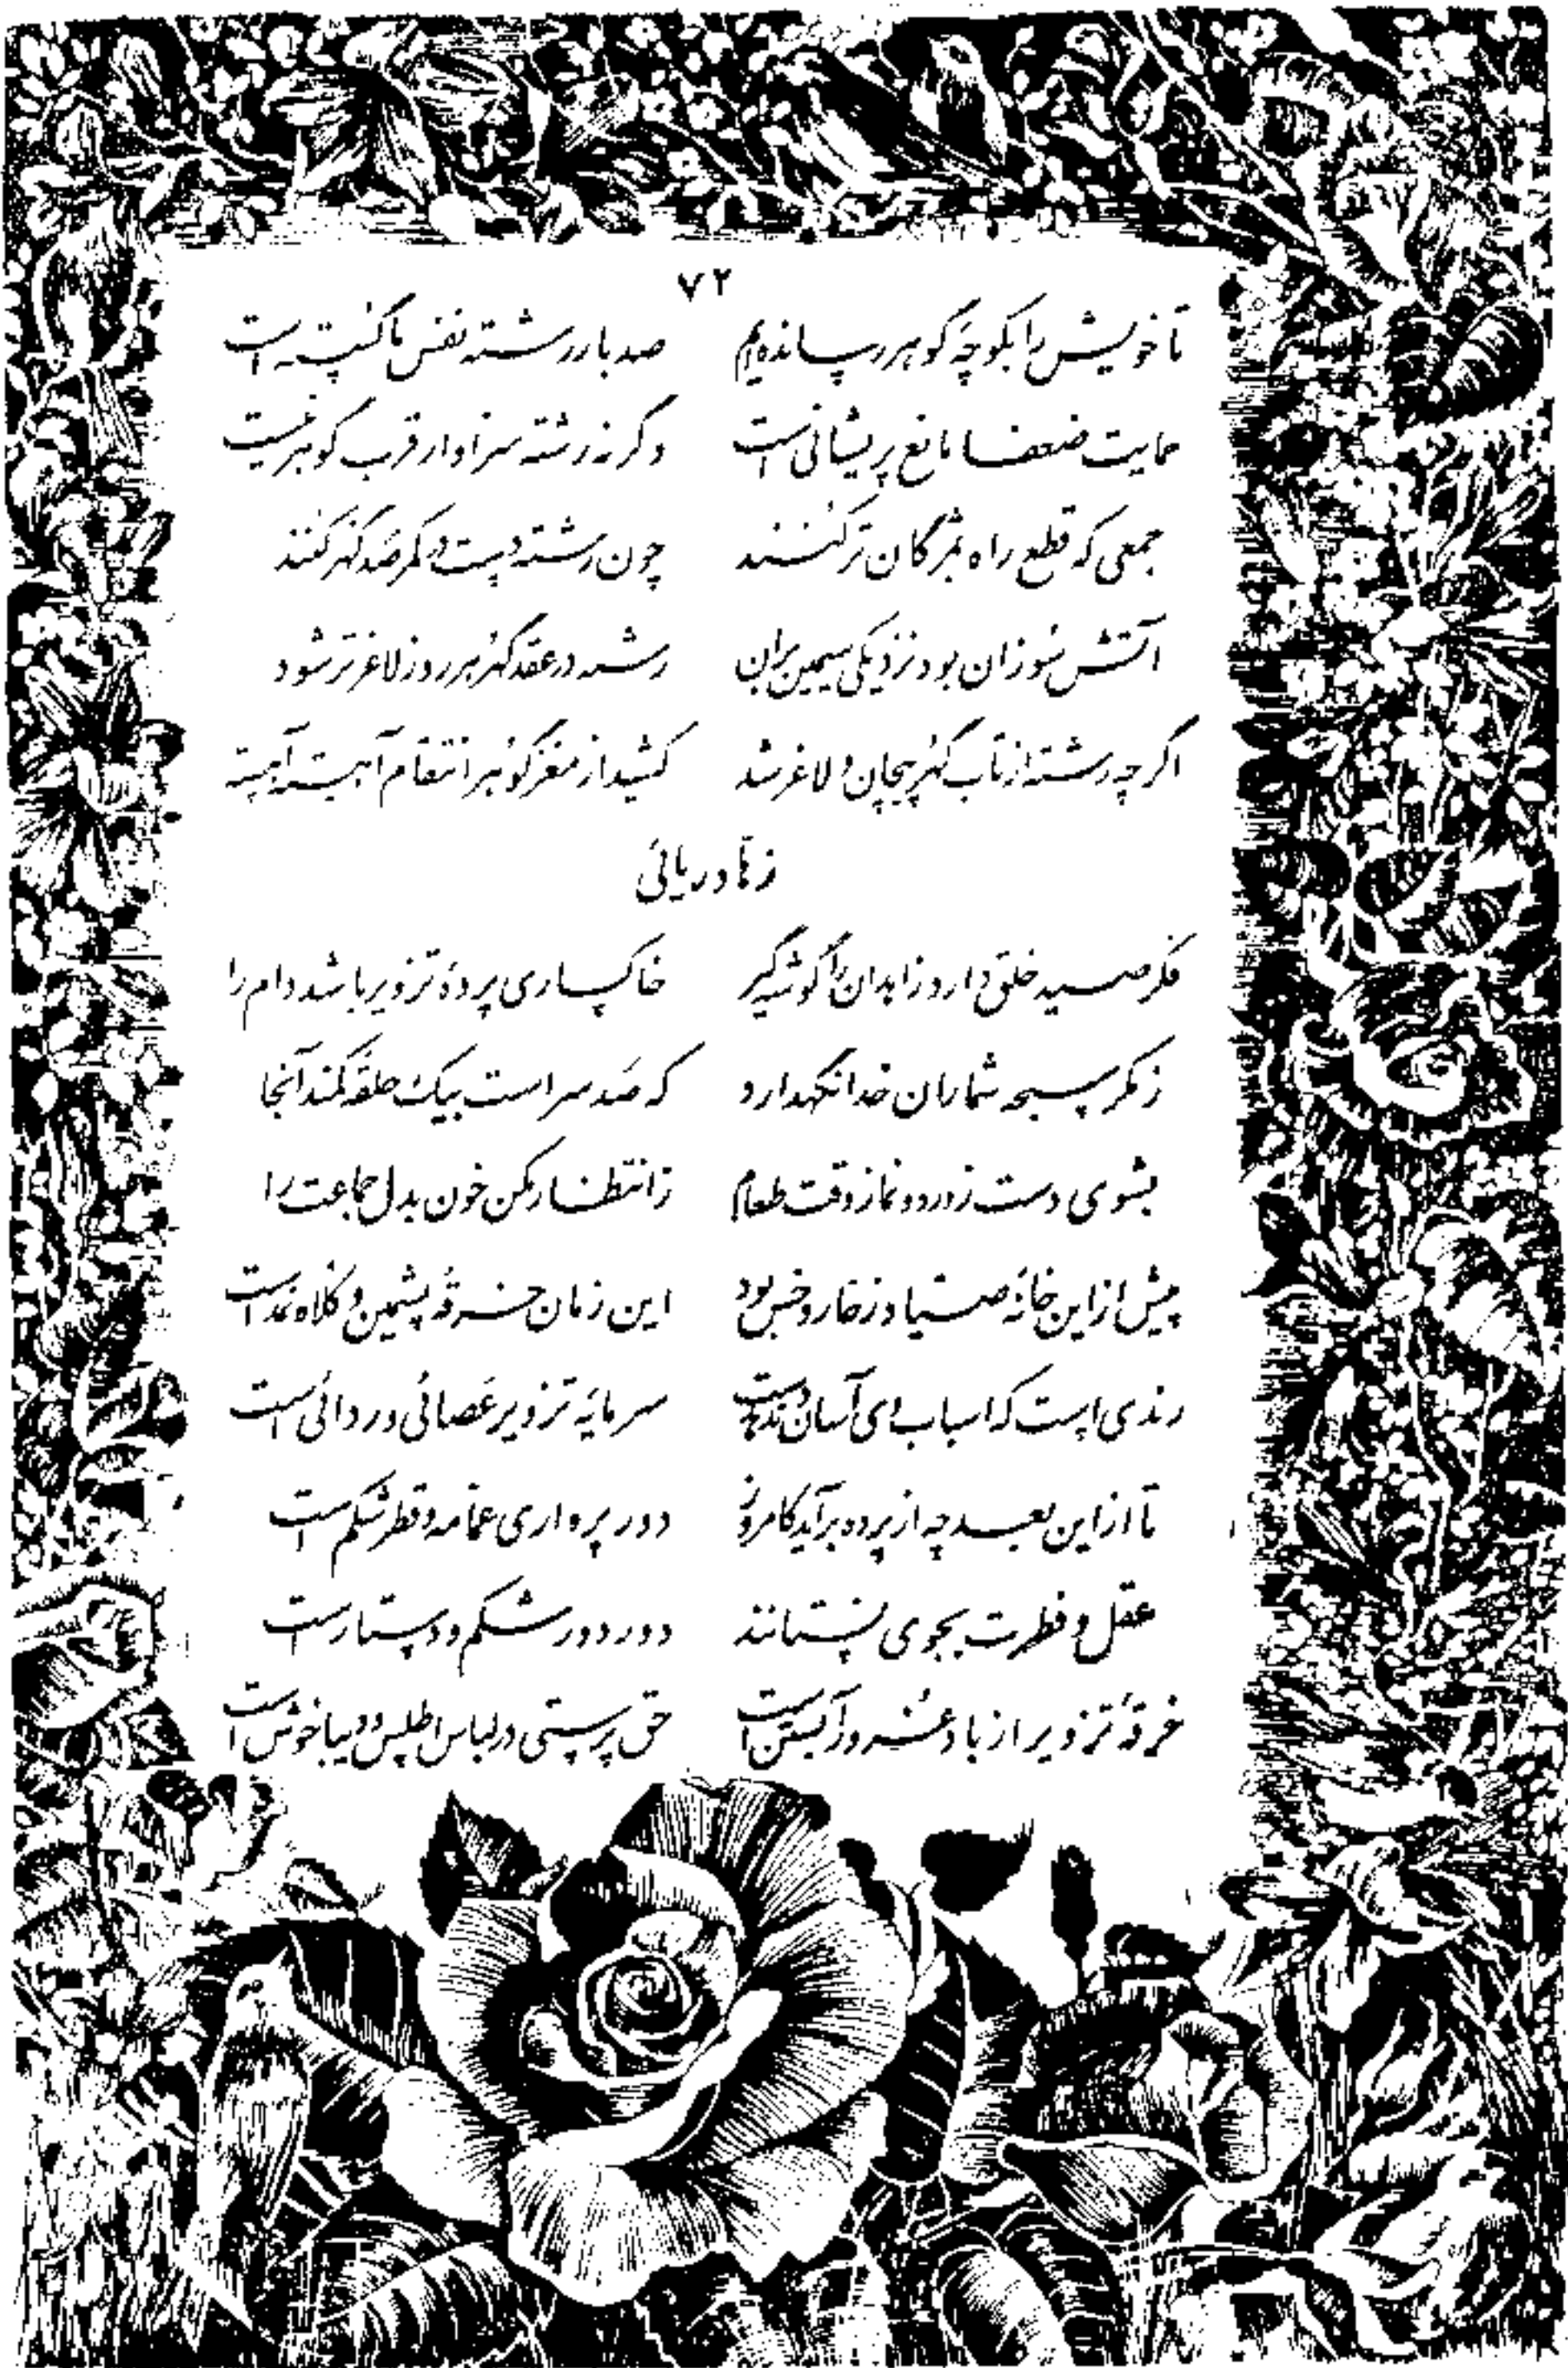 ۷۲
تا خویش را بکوچه گوهر رسانده‌ایم صد بار رشته نفس ما گسسته است
حمایت ضعفا مانع پریشانی است وگرنه رشته سزاوار قرب گوهر نیست
جمعی که قطع راه بمژگان تر کنند چون رشته دست در کمر صد گهر کنند
آتش سوزان بود نزدیکی سیمین بران رشته در عقد گهر هر روز لاغرتر شود
اگر چه رشته از تاب گهر پیچان و لاغر شد کشید از مغز گوهر انتقام آهسته آهسته
زهاد ریائی
فکر صید خلق دارد زاهدان را گوشه‌گیر خاکساری پرده تزویر باشد دام را
ز مکر سبحه شماران خدا نگهدارد که صد سر است بیک حلقه کمند آنجا
بشوی دست ز ورد و نماز وقت طعام ز انتظار مکن خون بدل جماعت را
پیش از این خانه صیاد ز خار و خس بود این زمان خرقه پشمین و کلاه نمد است
رندی است که اسباب وی آسان ندهد دست سرمایه تزویر عصائی و ردائی است
تا از این بعد چه از پرده برآید کامروز دور پرواری عمامه و قطر شکم است
عقل و فطرت بجوی نستانند دور دور شکم و دستار است
خرقه تزویر از باد غرور آبستن است حق پرستی در لباس اطلس و دیبا خوش است